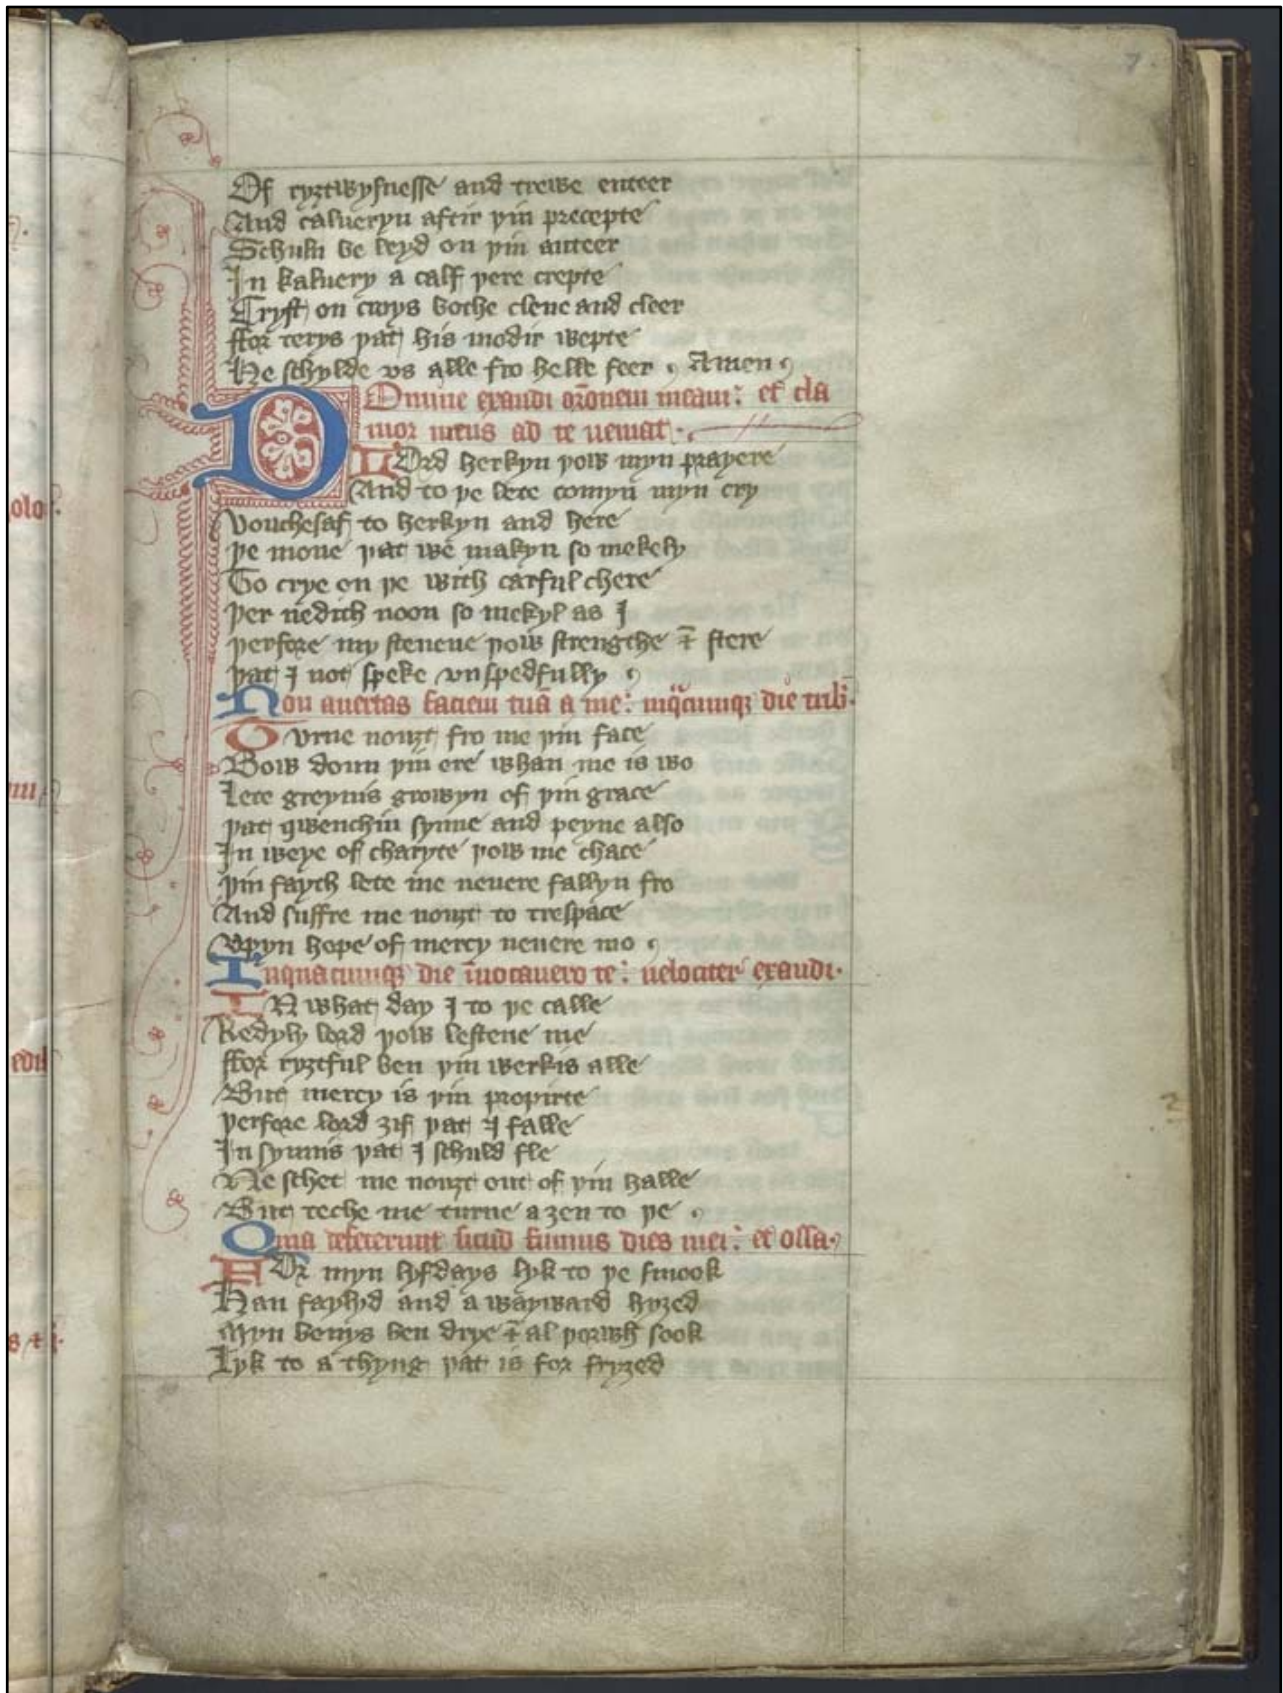 7.
Of ryȝtwysnesse and trewe enteer
And calueryn aftir þin precepte
Schuln be leyd on þin auteer
In kaluery a calf þere crepte
Cryst on croys bothe clene and cleer
ffor terys þat his modir wepte
He schylde vs alle fro helle feer . Amen .
Domine exaudi orōnem meam: et cla
mor meus ad te ueniat.
LOrd herkyn þow myn prayere
And to þe lete comyn myn cry
Vouchesaf to herkyn and here
þe mone þat we makyn so mekely
To crye on þe with carful chere
þer nedith noon so mekyl as I
þerfore my steuene þow strengthe & stere
þat I not speke vnspedfully .
Non auertas faciem tuā a me: in q̄cumqꝫ die trib̄.
Turne nouȝt fro me þin face
Bow doun þin ere whan me is wo
Lete greynis growyn of þin grace
þat qwenchin synne and peyne also
In weye of charyte þow me chace
þin fayth lete me neuere fallyn fro
And suffre me nouȝt to trespace
Vpyn hope of mercy neuere mo .
Inquacumqꝫ die īuocauero te: uelociter exaudi.
IN what day I to þe calle
Redyly lord þow lestene me
ffor ryȝtful ben þin werkis alle
But mercy is þin propirte
þerfore lord ȝif þat I falle
In synnis þat I schuld fle
Ne schet me nouȝt out of þin halle
But teche me turne aȝen to þe .
Quia defecerunt sicud fumus dies mei: et ossa.
FOr myn lyfdays lyk to þe smook
Han faylyd and awayward hyȝed
Myn bonys ben drye & al þorwh sook
Lyk to a thyng þat is for fryȝed